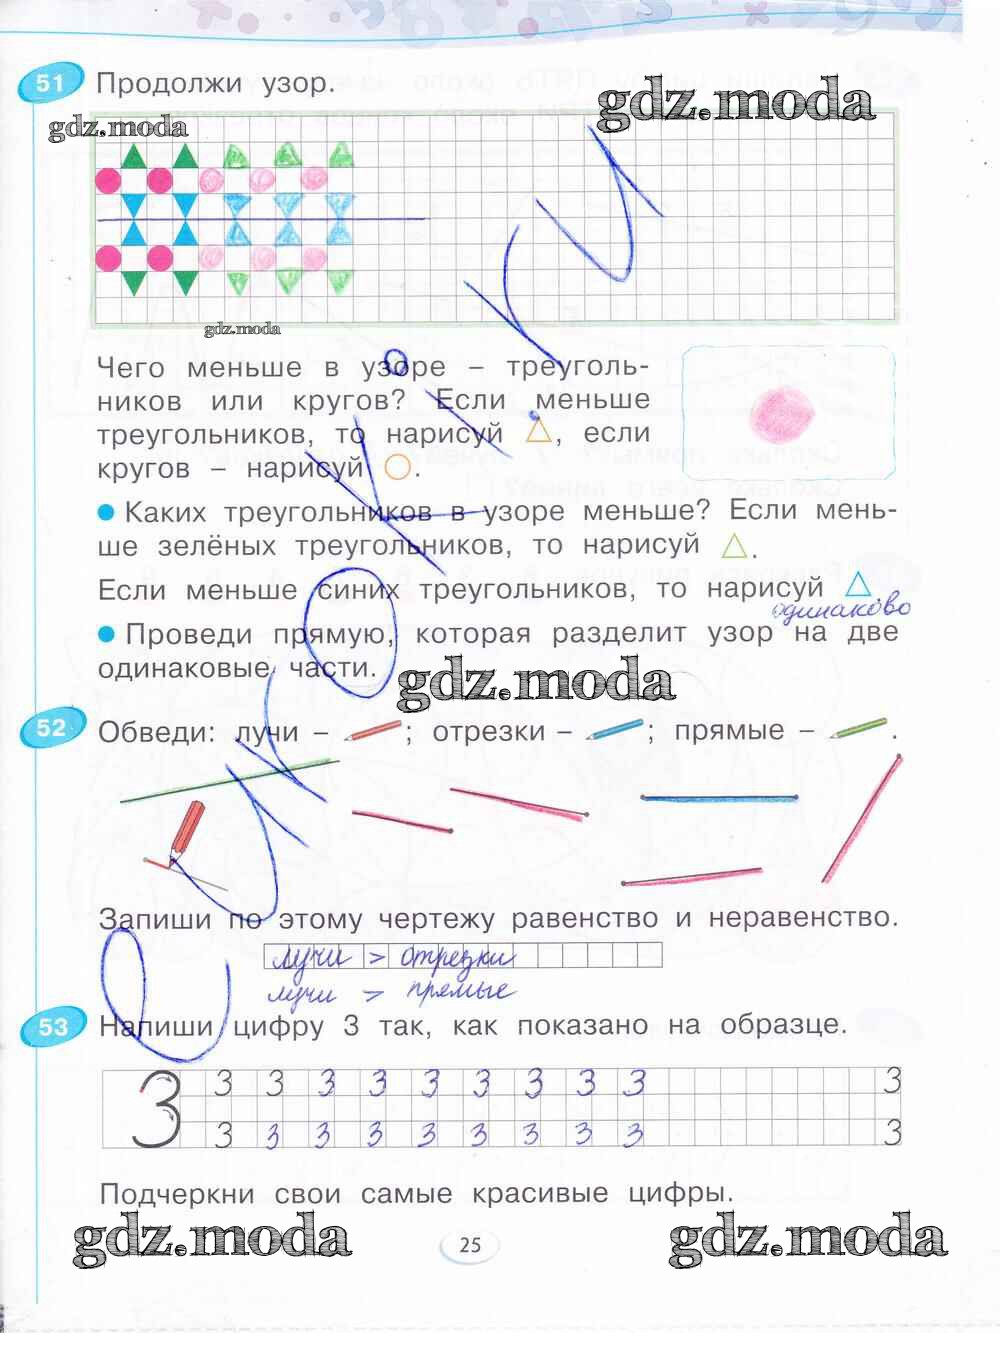 51 Продолжи узор.
gdz.moda
gdz.moda
gdz.moda
Чего меньше в узоре – треуголь-
ников или кругов? Если меньше
треугольников, то нарисуй , если
кругов – нарисуй .
Каких треугольников в узоре меньше? Если мень-
ше зелёных треугольников, то нарисуй .
Если меньше синих треугольников, то нарисуй .
одинаково
Проведи прямую, которая разделит узор на две
одинаковые части.
gdz.moda
52 Обведи: лучи – ; отрезки – ; прямые – .
Запиши по этому чертежу равенство и неравенство.
лучи > отрезки
лучи > прямые
53 Напиши цифру 3 так, как показано на образце.
3 3 3 3 3 3 3 3 3 3 3
3 3 3 3 3 3 3 3 3 3
Подчеркни свои самые красивые цифры.
gdz.moda
25
gdz.moda